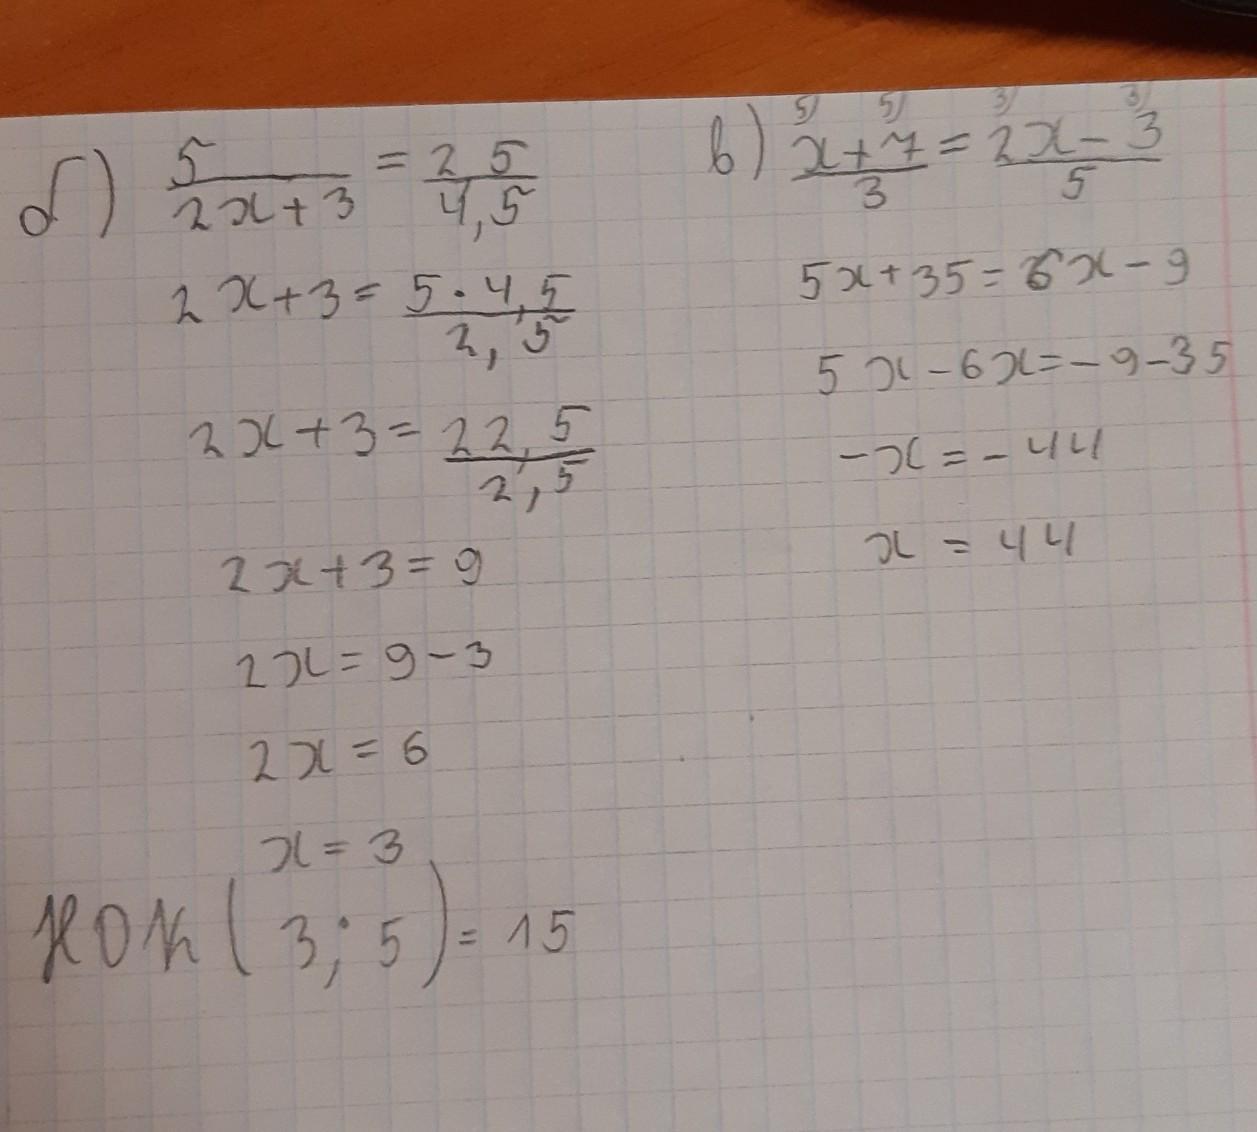 б) 5/(2x+3) = 2 5/4,5
2x+3 = 5·4,5/2,5
2x+3 = 22,5/2,5
2x+3 = 9
2x = 9-3
2x = 6
x = 3
НОК (3; 5) = 15
в) 5) 5) 3) 3)
x+7/3 = 2x-3/5
5x+35 = 6x-9
5x-6x = -9-35
-x = -44
x = 44